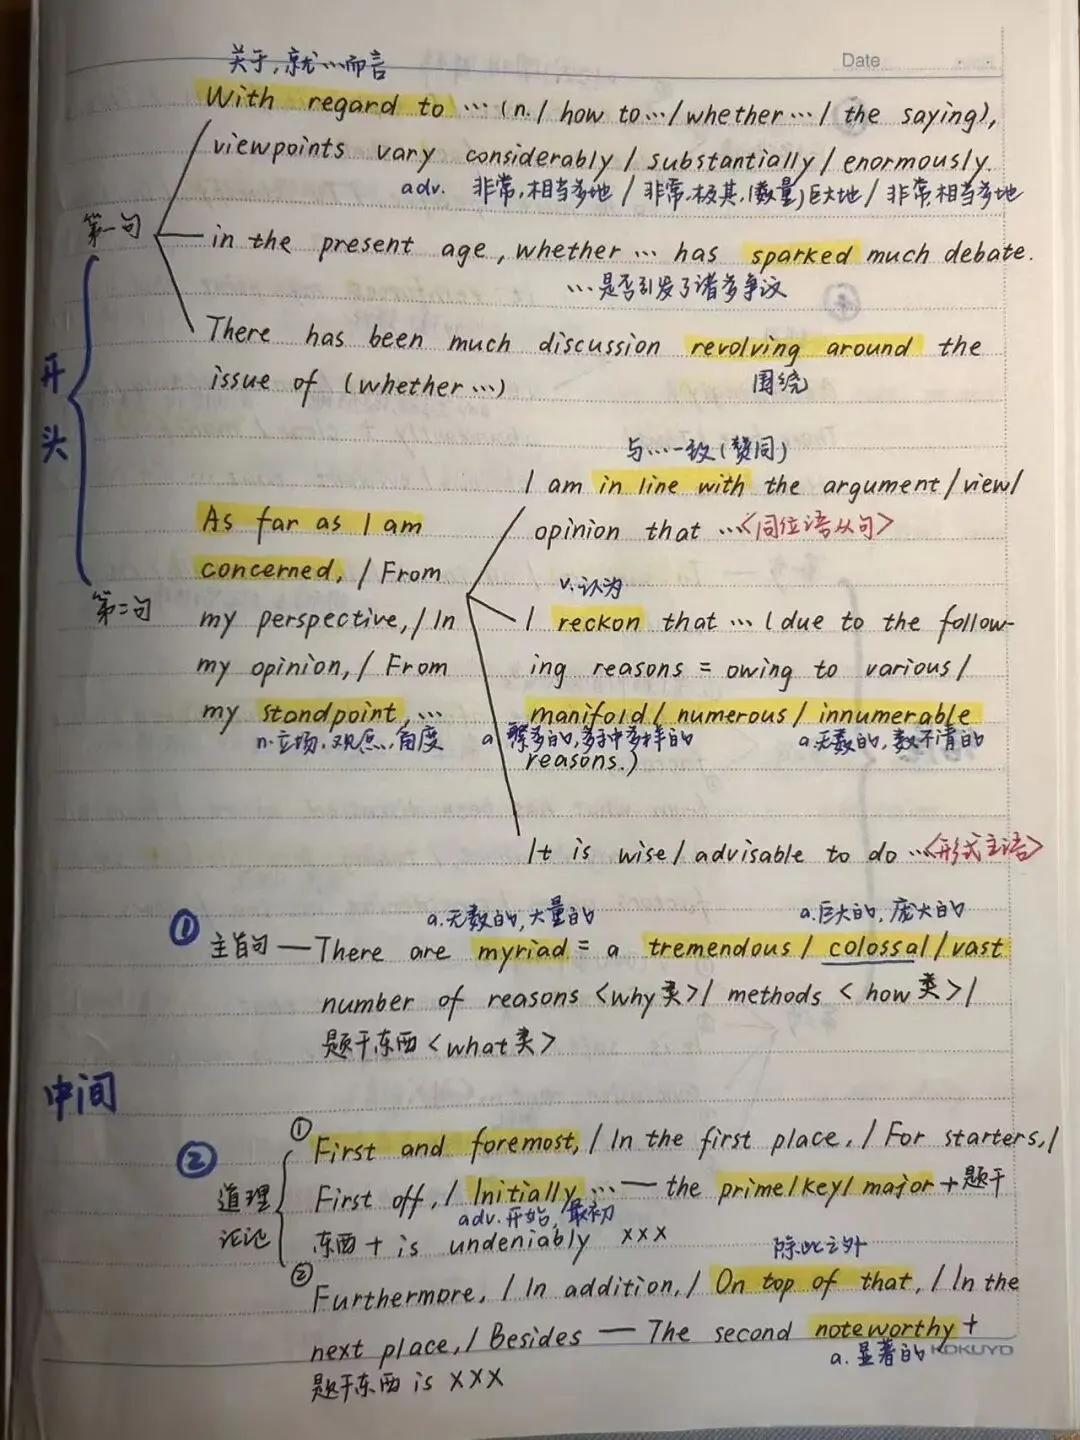 Date
关于,就…而言
With regard to … (n. / how to … / whether … / the saying),
viewpoints vary considerably / substantially / enormously.
adv. 非常,相当多地 / 非常,极其,(数量)巨大地 / 非常,相当多地
第一句
in the present age, whether … has sparked much debate.
…是否引发了诸多争议
There has been much discussion revolving around the
围绕
issue of (whether …)
开头
第二句
As far as I am
concerned, / From
my perspective, / In
my opinion, / From
my standpoint, …
n.立场,观点,角度
与…一致(赞同)
I am in line with the argument / view /
opinion that … <同位语从句>
v.认为
I reckon that … (due to the follow-
ing reasons = owing to various /
manifold / numerous / innumerable
a.繁多的,多种多样的
a.无数的,数不清的
reasons.)
It is wise / advisable to do … <形式主语>
中间
①
a.无数的,大量的
a.巨大的,庞大的
主旨句 — There are myriad = a tremendous / colossal / vast
number of reasons <why类> / methods < how类> /
题干东西 <what类>
②
道理论论
① First and foremost, / In the first place, / For starters, /
First off, / Initially … — the prime / key / major + 题干
adv.开始,最初
东西 + is undeniably xxx
除此之外
② Furthermore, / In addition, / On top of that, / In the
next place, / Besides — The second noteworthy +
a.显著的
KOKUYO
题干东西 is XXX